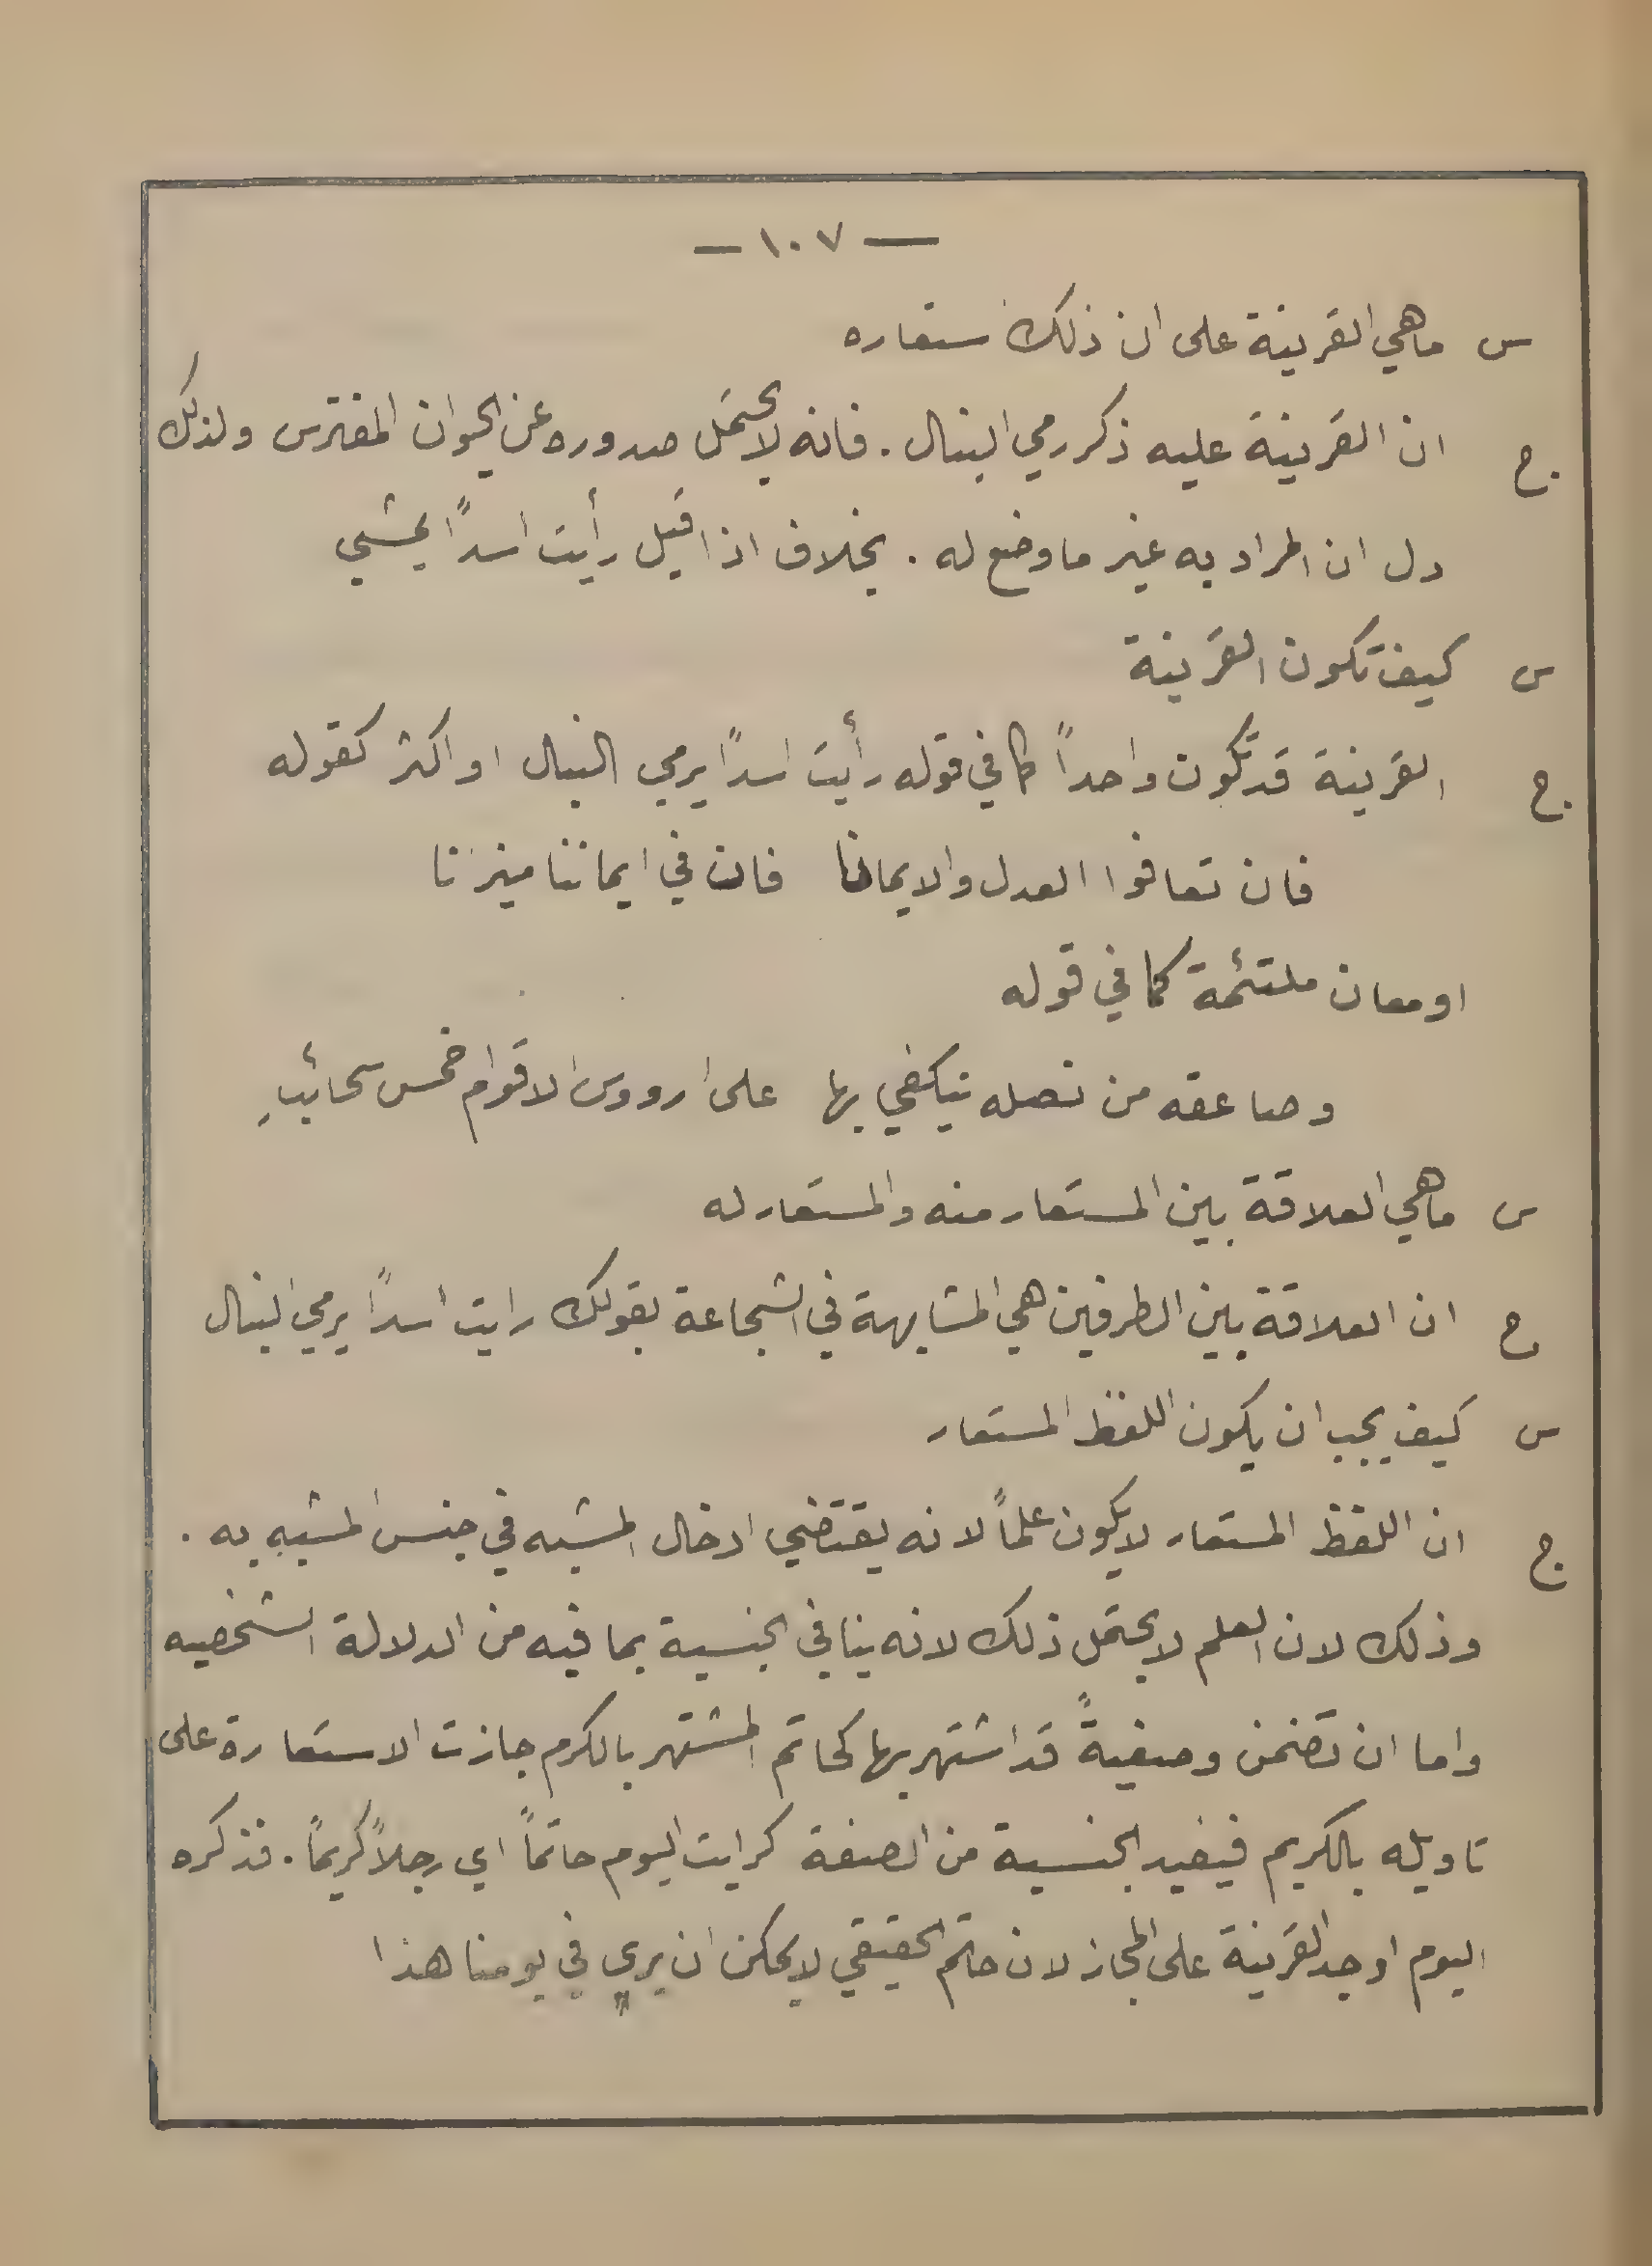 — ١٠٧ —
س ما هي القرينة على ان ذلك ستعاره
ج. ان القرينة عليه ذكر رمي النبال . فانه لا يحتمل صدوره عن الحيوان المفترس ولذلك
دل ان المراد به غير ما وضع له . بخلاف اذا قيل رأيت اسدًا يمشي
س كيف تكون القرينة
ج. القرينة قد تكون واحداً كما في قوله رأيت اسدًا يرمي النبال او اكثر كقوله
فان تعافوا العدل والايمانا فان في ايماننا ميزانا
او معان ملتئمة كما في قوله
وصاعقه من نصله يتكفي بها على ارووس الاقوام خمس سحائبِ
س ما هي العلاقة بين المستعار منه والمستعار له
ج ان العلاقة بين الطرفين هي المشابهة في الشجاعة بقولك رايت اسدًا يرمي النبال
س كيف يجب ان يكون اللفظ المستعار
ج. ان اللفظ المستعار لا يكون علماً لانه يقتضي ادخال المشبه في جنس المشبه به .
وذلك لان العلم لا يحتمل ذلك لانه ينافي الجنسية بما فيه من الدلالة الشخصيه
واما ان تضمن وصفيةً قد اشتهر بها كحاتم المشتهر بالكرم جازت الاستعارة على
تاويله بالكريم فيفيد الجنسية من الصفة كرايت اليوم حاتماً اي رجلاً كريماً . فذكره
اليوم اوجد القرينة على المجاز لان حاتم الحقيقي لا يمكن ان يرى في يومنا هذا